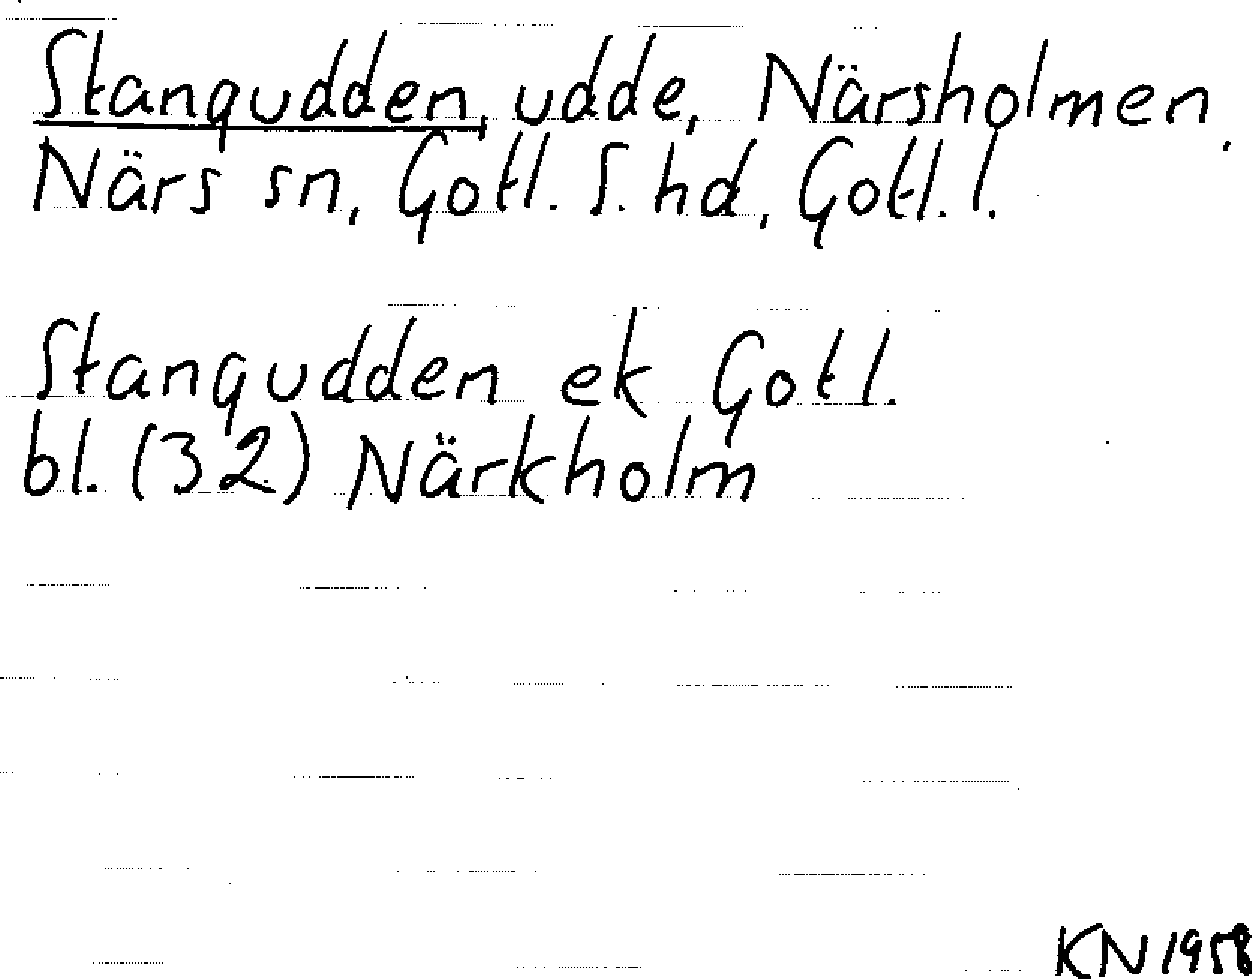 Stangudden, udde, Närsholmen,
Närs sn, Gotl. S. hd, Gotl. l.
Stangudden ek Gotl.
bl. (32) Närkholm
KN 1958